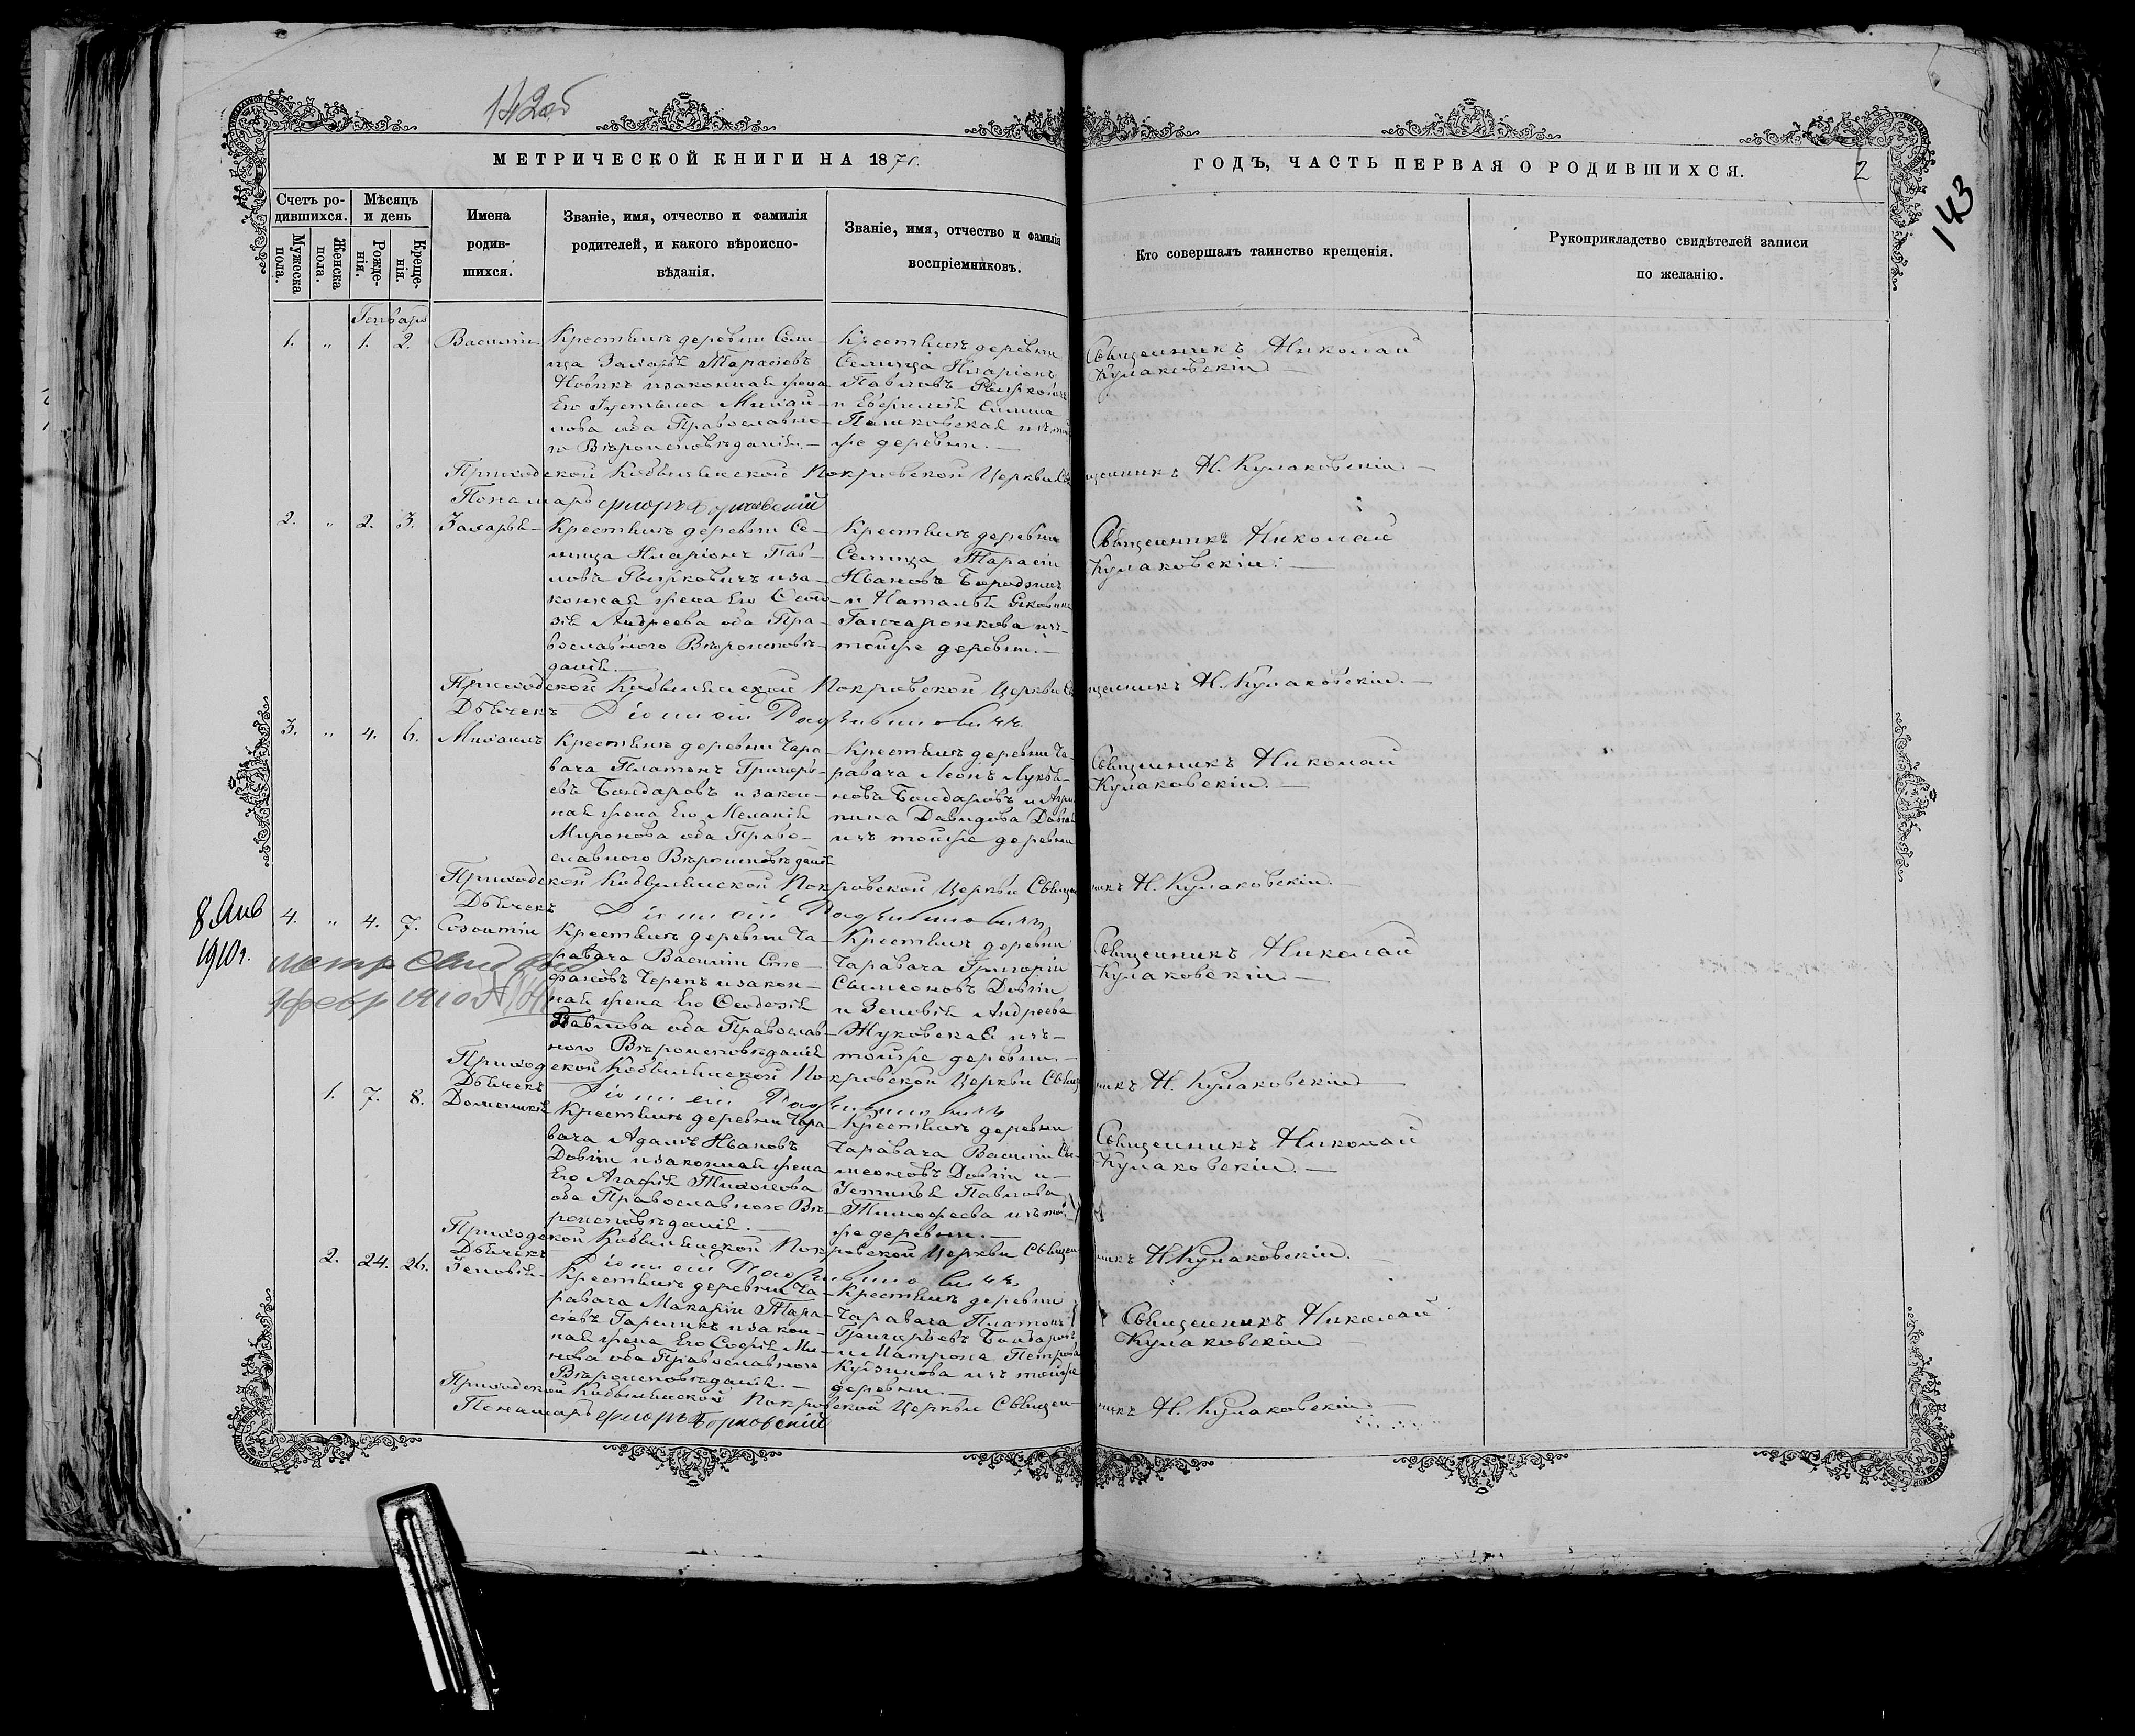 142об
МЕТРИЧЕСКОЙ КНИГИ НА 1871.
ГОДЪ, ЧАСТЬ ПЕРВАЯ О РОДИВШИХСЯ.
2
143
Счетъ ро-
дившихся.
Мужеска
пола.
Женска
пола.
Мѣсяцъ
и день
Рожде-
нія.
Креще-
нія.
Имена
родив-
шихся.
Званіе, имя, отчество и фамилія
родителей, и какого вѣроиспо-
вѣданія.
Званіе, имя, отчество и фамилія
воспріемниковъ.
Кто совершалъ таинство крещенія.
Рукоприкладство свидѣтелей записи
по желанію.
Генваря
1. " 1. 2. Василій.
Крестьянъ деревни Сели-
ца Захарій Тарасіевъ
Новикъ и законная жена
Его Іустинья Михай-
лова оба Православна-
го Вѣроисповѣданія.—
Крестьянъ деревни
Селица Иларіонъ
Павловъ
и Евфимія
изъ той
же деревни.—
Священникъ Николай
Кулаковскій
Приходской Кобыльянской Покровской Церкви Священникъ Н. Кулаковскій.—
Понамарь
2. " 2. 3. Захарій—
Крестьянъ деревни Се-
лица Иларіонъ Пав-
ловъ и за-
конная жена Его Феодо-
сія Андреева оба Пра-
вославного Вѣроисповѣ-
данія.—
Крестьянъ деревни
Селица Тарасій
Ивановъ
и Наталья
Ганчаронкова изъ
тойже деревни.—
Священникъ Николай
Кулаковскій.—
Приходской Кобыльянской Покровской Церкви Священникъ Н. Кулаковскій.—
Дьячекъ
3. " 4. 6. Михаилъ
Крестьянъ деревни Чара-
вача Платонъ Григорь-
евъ Бондаровъ и закон-
ная жена Его Меланія
Миронова оба Право-
славного Вѣроисповѣданія
Крестьянъ деревни Ча-
равача Леонъ Лукья-
новъ Бондаровъ и Агри-
пина Давидова
изъ тойже деревни
Священникъ Николай
Кулаковскій.—
Приходской Кобыльянской Покровской Церкви Священникъ Н. Кулаковскій.—
Дьячекъ
8 Янв
1910г.
4. " 4. 7. Созонтій
Крестьянъ деревни Ча-
равача Василій Сте-
фановъ Черепъ и закон-
ная жена Его Феодосія
Павлова оба Православ-
ного Вѣроисповѣданія
Крестьянъ деревни
Чаравача Григорій
Симеоновъ Довгій
и Зеновія Андреева
Жуковская изъ
тойже деревни.—
Священникъ Николай
Кулаковскій—
Приходской Кобыльянской Покровской Церкви Священникъ Н. Кулаковскій—
Дьячекъ
1. 7. 8. Доминикія
Крестьянъ деревни Чара-
вача Адамъ Ивановъ
Довгій и законная жена
Его Агафія Тихонова
оба Православного Вѣ-
роисповѣданія.—
Крестьянъ деревни
Чаравача Василій Си-
меоновъ Довгій и
Устинья Павлова
Тимофеева изъ той
же деревни.—
Священникъ Николай
Кулаковскій.—
Приходской Кобыльянской Покровской Церкви Священникъ Н. Кулаковскій.
Дьячекъ
2. 24. 26. Зеновія—
Крестьянъ деревни Ча-
равача Макарій Тара-
сіевъ и закон-
ная жена Его Софія
оба Православного
Вѣроисповѣданія.—
Крестьянъ деревни
Чаравача Платонъ
Григорьевъ Бондаровъ
и Матрона Петрова
изъ тойже
деревни.—
Священникъ Николай
Кулаковскій
Приходской Кобыльянской Покровской Церкви Священникъ Н. Кулаковскій—
Понамарь